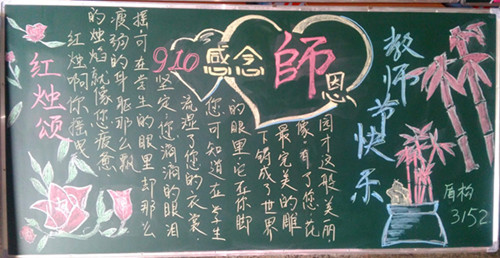 910 感念師恩
红烛颂
红烛啊你摇曳
的烛焰就像您疲惫
瘦弱的身躯那么飘
摆,可在学生的眼里却那么
坚定.您滴滴的眼泪
流湿了您的衣裳.
您可知道在学生
的眼里.它在你脚
下铸成了世界
最完美的雕
像.有了您,花
园才这般美丽
教师节快乐
3152